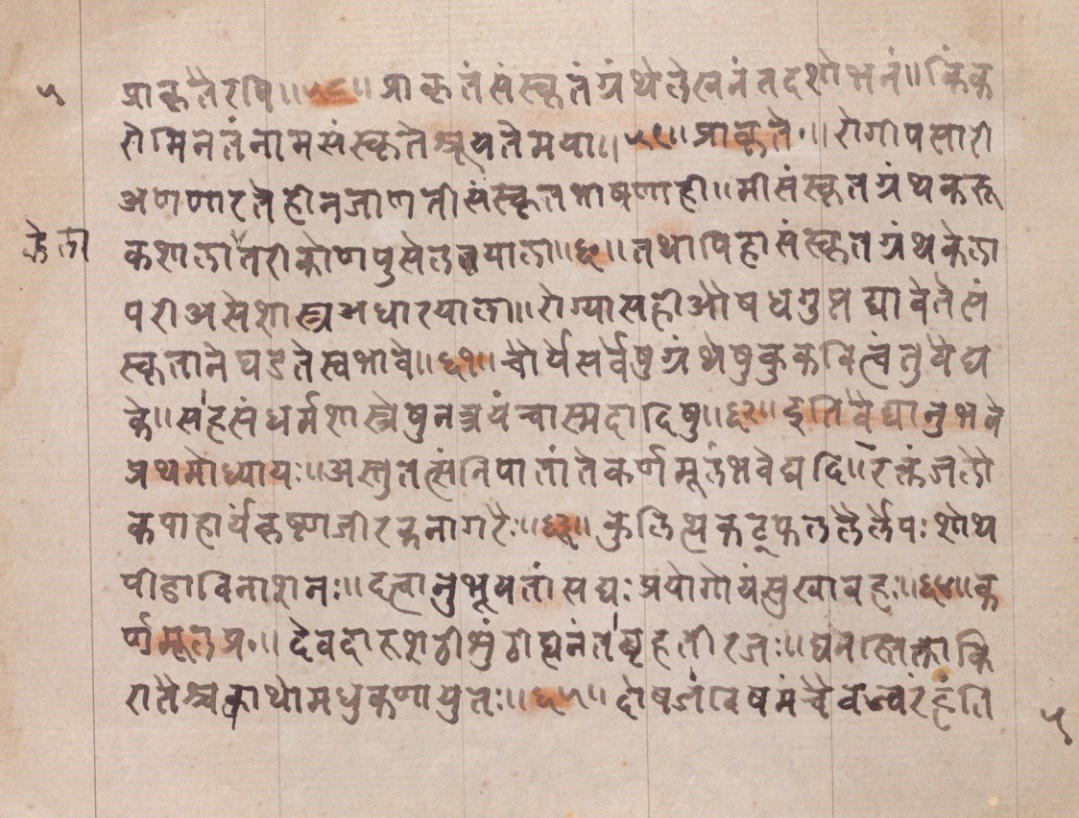 ५
प्राकृतैरपि॥५८॥प्राकृतंसंस्कृतंग्रंथेलेखनंतदशोभनं॥किंक
रोमिनतंनामसंस्कृतेश्रूयतेमया॥५९॥प्राकृते॰॥रोगीपसारी
अणणारतेहीनजाणतीसंस्कृतभाषणाही॥मीसंस्कृतग्रंथकरू
केला
कशालातरीकोणपुसेलतयाला॥६०॥तथापिहासंस्कृतग्रंथकेला
परीअसेशास्त्रअधारयाला॥रोग्यासहीऔषधगुप्तद्यावेतेसं
स्कृतानेघडतेस्वभावे॥६१॥चौर्यंसर्वेषुग्रंथेषुकुकवित्वंतुवैद्य
के॥सहसंधर्मशास्त्रेषुनत्रयंचास्मदादिषु॥६२॥इतिवैद्यानुभवे
प्रथमोध्यायः॥अस्तुतत्संनिपातांतेकर्णमूलंभवेद्यदि॥रक्तंजलौ
कपाहार्यंकृष्णजीरकनागरैः॥६३॥कुलित्थकट्फलतलैर्लेपःशोथ
पीडाविनाशनः॥दृत्वानुभूयतांसद्यःप्रयोगोयंसुखावहः॥६४॥क
र्णमूलप्र॰॥देवदारूशठीशुंठीघनंतंबृहतीरजः॥घनस्तिक्ताकि
रातैश्चक्वाथोमधुकणायुतः॥६५॥दोषजंविषमंचैवज्वरंहंति
५